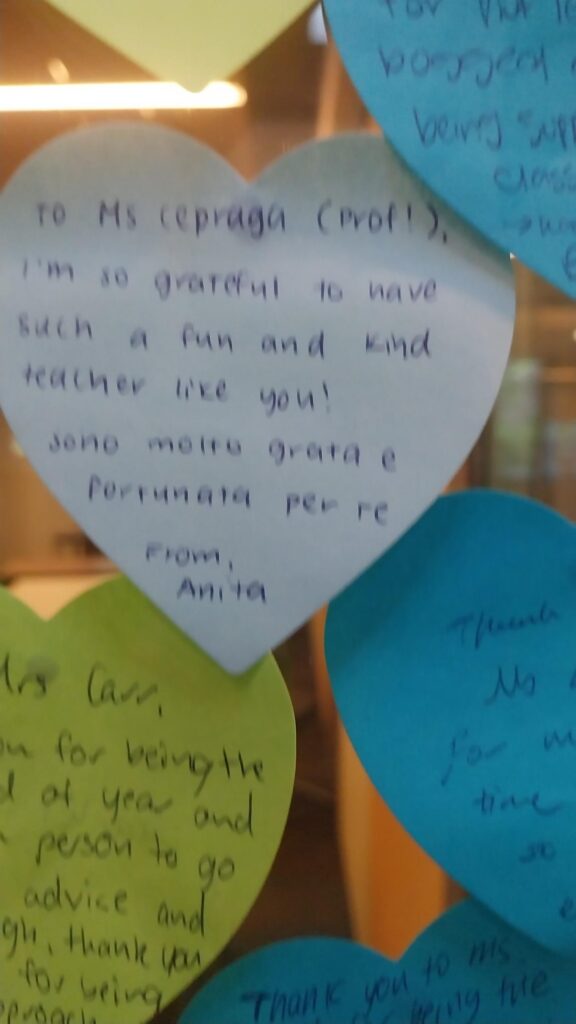 for
bogged
being supp
class
TO Ms Cepraga (Prof!),
I'm so grateful to have
such a fun and kind
teacher like you!
sono molto grata e
fortunata per te
From,
Anita
Mrs Carr,
for being the
of year and
person to go
advice and
thank you
for being
Thank
Ms
for
time
so
Thank you to Ms
being the